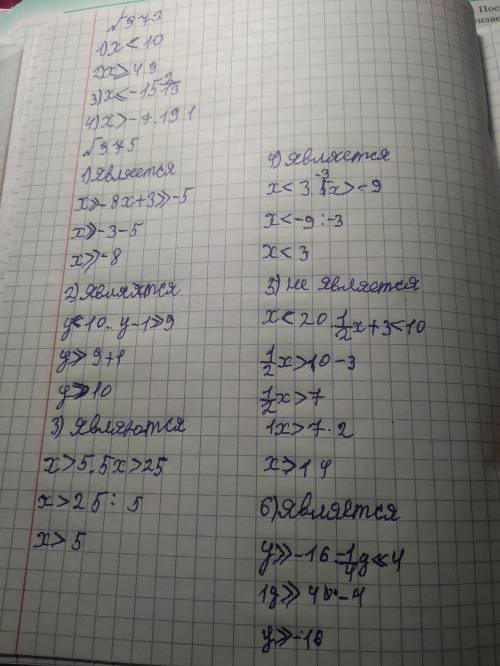 №973
1) x < 10
2) x ≥ 4.9
3) x ≤ -15 2/13
4) x > -7.191
№975
1) является
x ≥ -8 x+3 ≥ -5
x ≥ -3-5
x ≥ -8
2) являются
y ≤ 10. y-1 ≥ 9
y ≥ 9+1
y ≥ 10
3) являются
x > 5. 5x > 25
x > 25 : 5
x > 5
4) является
x < 3. -3x > -9
x < -9 : -3
x < 3
5) не является
x < 20. 1/2x+3 < 10
1/2x > 10-3
1/2x > 7
1x > 7·2
x > 14
6) является
y ≥ -16. -1/4y ≤ 4
1y ≥ 4·-4
y ≥ -16